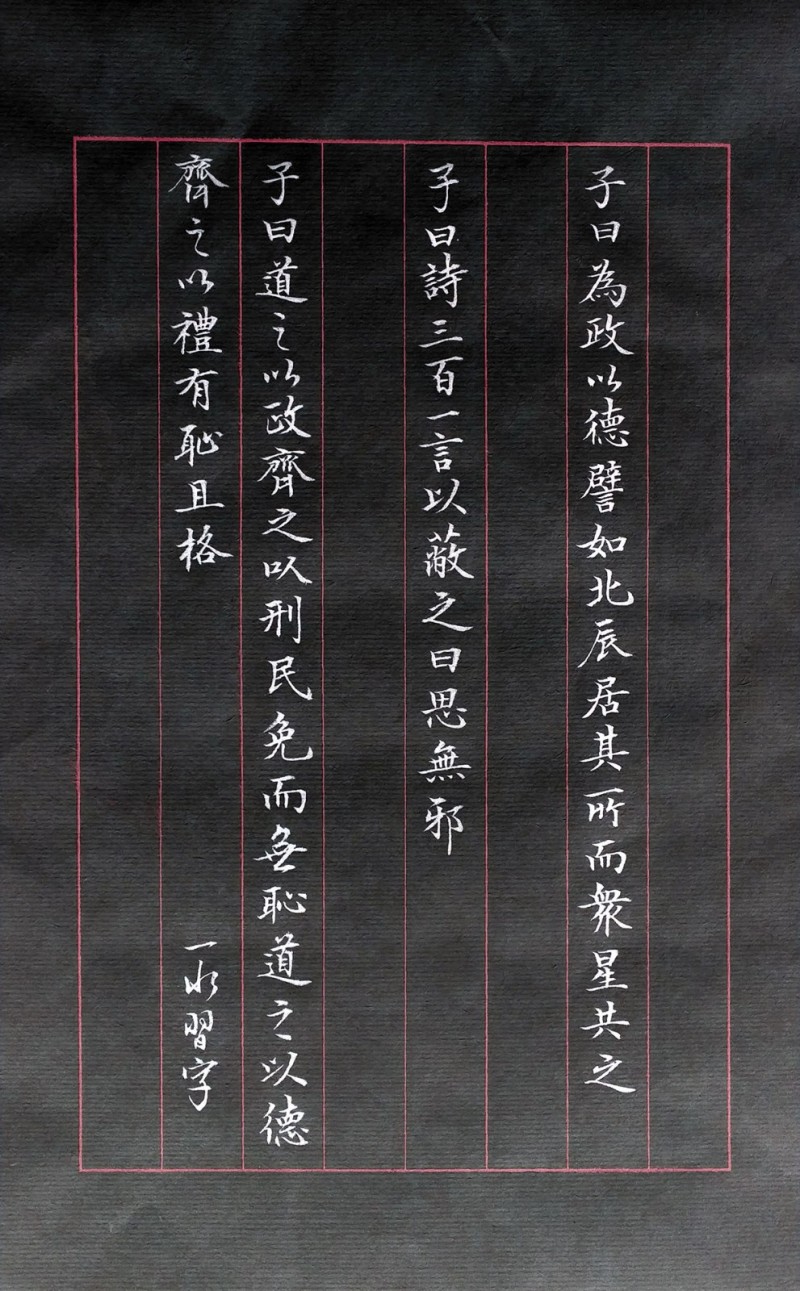 子曰為政以德譬如北辰居其所而衆星共之
子曰詩三百一言以蔽之曰思無邪
子曰道之以政齊之以刑民免而無恥道之以德
齊之以禮有恥且格
一水習字